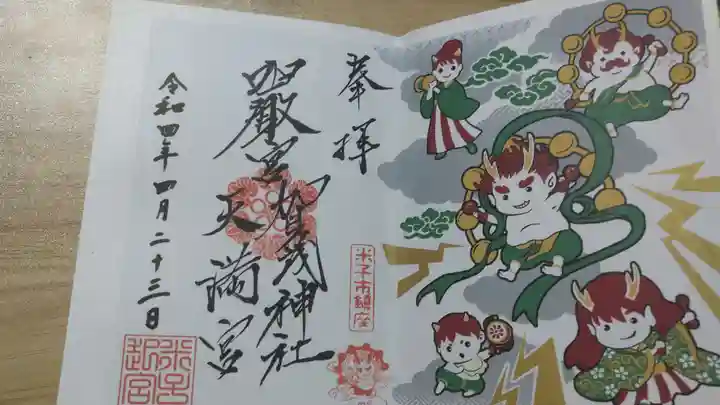 奉拝
宮賀茂神社
天満宮
令和四年四月二十三日
米子市鎮座